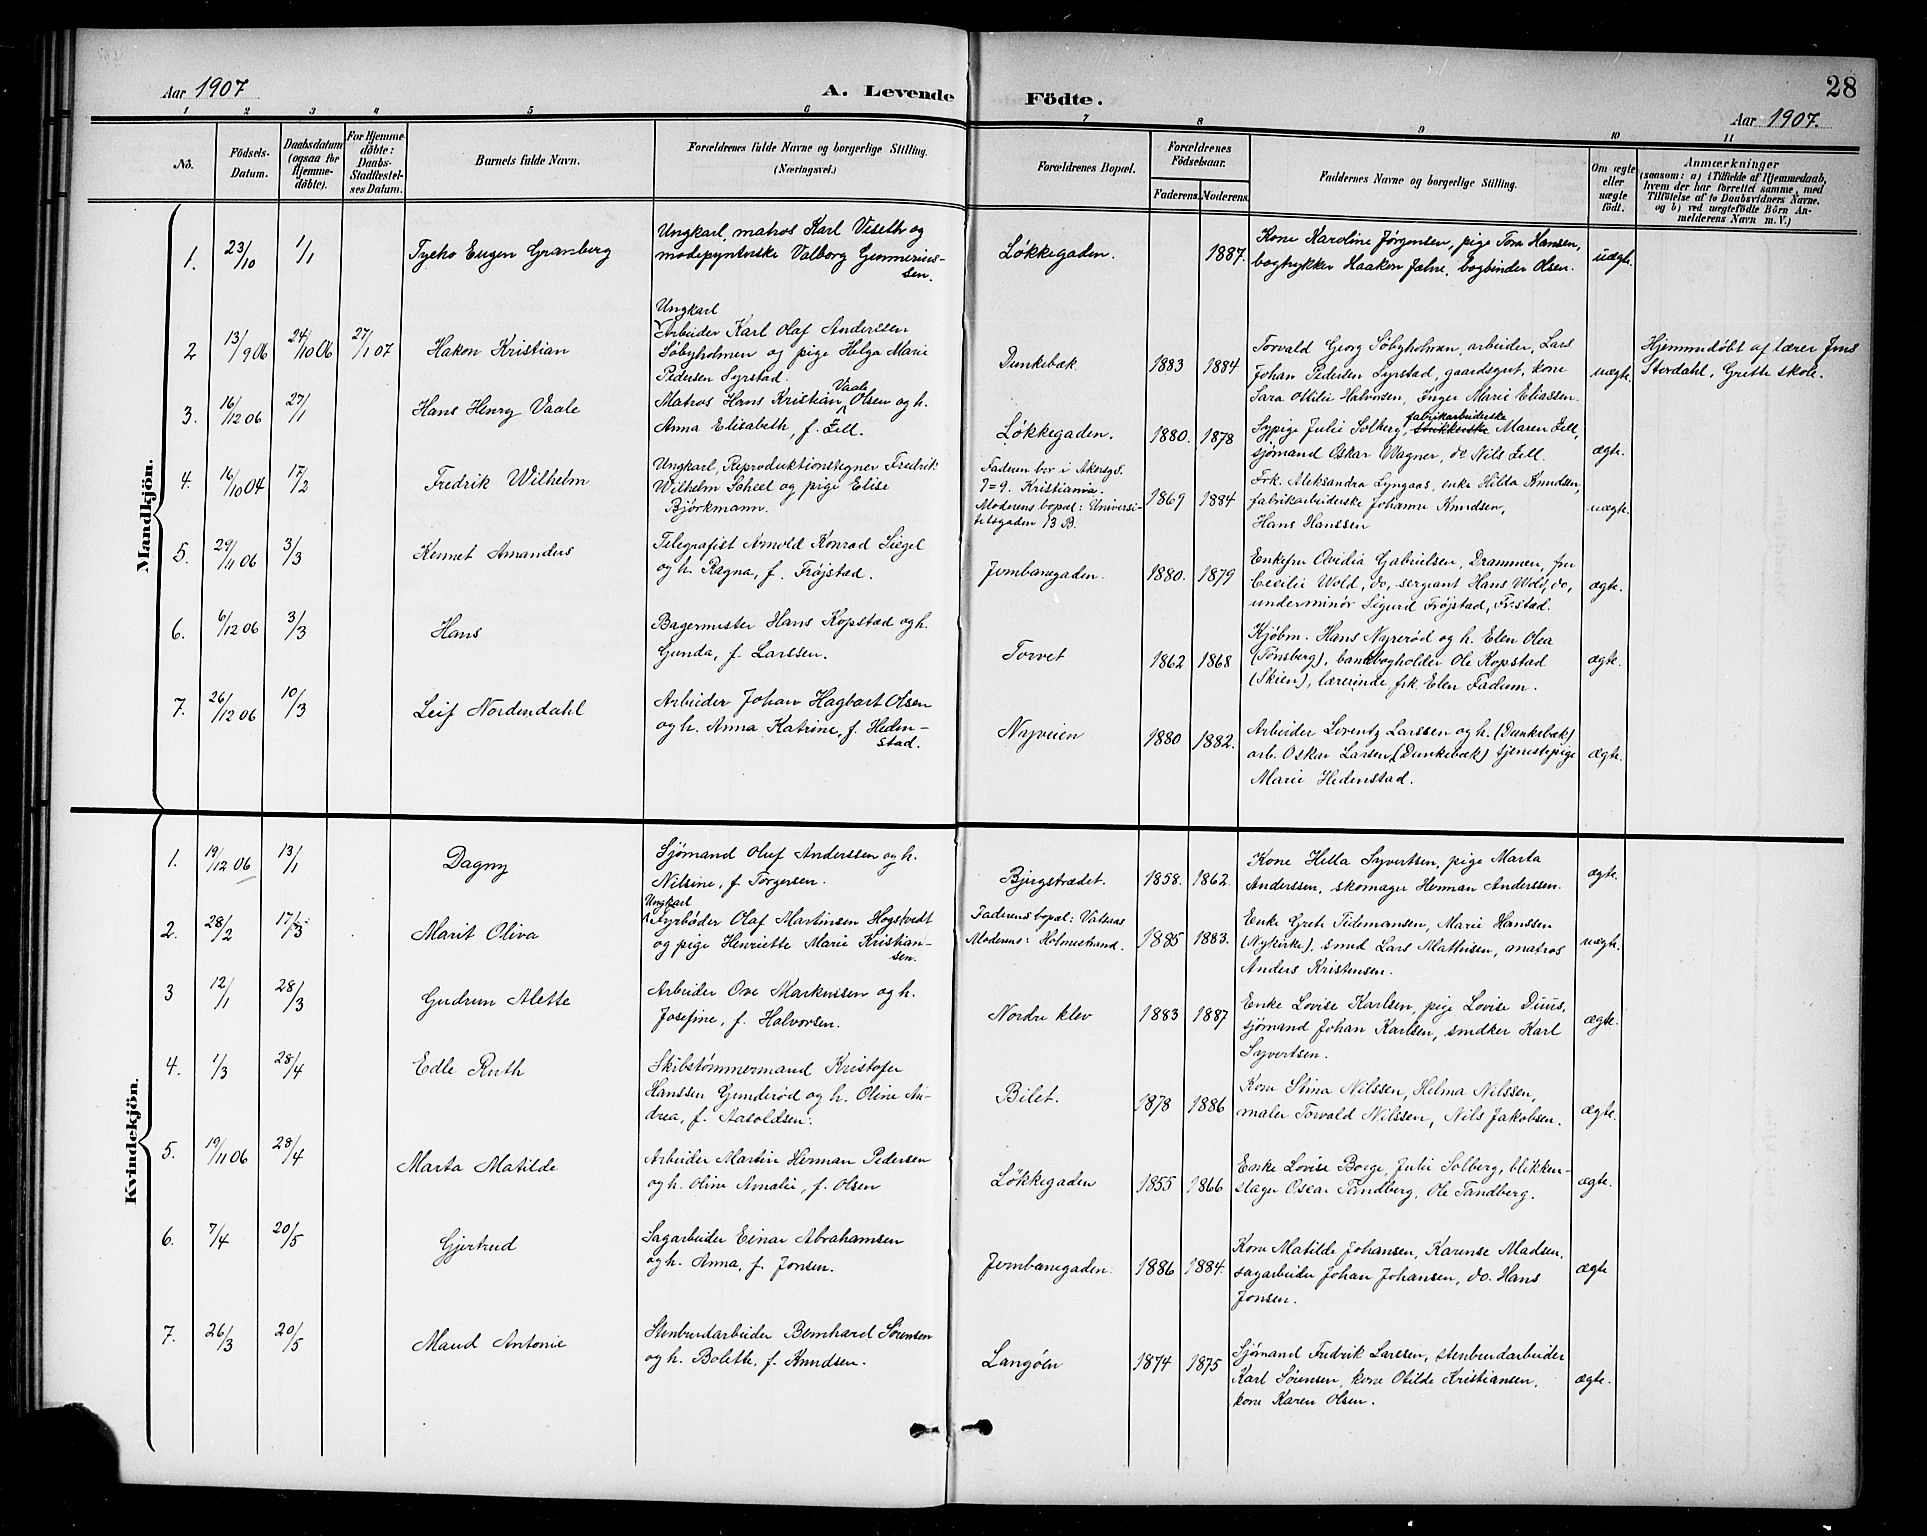 28
Aar 1907
A. Levende
Födte.
Aar 1907.
1 2 3 4 5 6 7 8 9 10 11
No.
Födsels-Datum.
Daabsdatum (ogsaa for Hjemmedöbte).
For Hjemmedöbte: Daabs-Stadfestelses Datum.
Barnets fulde Navn.
Forældrenes fulde Navne og borgerlige Stilling.
(Næringsvei.)
Forældrenes Bopæl.
Forældrenes Födselsaar.
Faderens. Moderens.
Faddernes Navne og borgerlige Stilling.
Om ægte eller uægte födt.
Anmærkninger
(saasom: a) i Tilfælde af Hjemmedaab, hvem der har forrettet samme, med Tilföielse af to Daabsvidners Navne, og b) ved uægtefödte Börn Anmelderens Navn m. V.)
Mandkjön.
1. 23/10 1/1 Tycho Eugen Granberg
Ungkarl, matros Karl Viseth og
modepynterske Valborg
Løkkegaden. 1887.
Kone Karoline Jørgensen, pige Tora Hansen,
bogtrykker Haakon Jahre, bogbinder Olsen.
uægte.
2 13/9 06 24/10 06 27/1 07 Hakon Kristian
Ungkarl
Arbeider Karl Olaf Anderssen
Søbyholmen og pige Helga Marie
Pedersen Syrstad.
Dunkebæk. 1883 1884
Torvald Georg Søbyholmen, arbeider, Lars
Johan Pedersen Syrstad, gaardsgut, kone
Sara Otilie Halvorsen, Inger Marie Eliassen.
uægte.
Hjemmedøbt af lærer Jens
Stordahl, Grette skole.
3. 16/12 06 27/1 Hans Henry Vaale
Matros Hans Kristian Vaale Olsen og h.
Anna Elisabeth, f. Zell.
Løkkegaden. 1880. 1878
Sypige Julie Solberg, fabrikarbeiderske Maren Zell,
sjømand Oskar Wagner, do Nils Zell.
ægte.
4. 16/10 04 17/2 Fredrik Wilhelm
Ungkarl, Reproduktionstegner Fredrik
Wilhelm Saheel og pige Elise
Björkmann.
Faderen bor i Akersgd.
7=9. Kristiania.
Moderens bopæl: Universi-
tetsgaden 13 B.
1869 1884
Frk. Aleksandra Lyngaas, enke Hilda Knudsen,
fabrikarbeiderske Johanne Knudsen,
Hans Hanssen
uægte.
5. 29/11 06 3/3 Kennet Amandus
Telegrafist Arnold Konrad Siegel
og h. Ragna, f. Frøjstad.
Jernbanegaden. 1880. 1879
Enkefru Ovidia Gabrielsen, Drammen, fru
Cecilie Wold, do, sergeant Hans Wold, do,
underminør Sigurd Frøjstad, Fr.stad.
ægte.
6. 6/12 06 3/3 Hans
Bagermester Hans Kopstad og h.
Gunda, f. Larssen.
Torvet 1862 1868
Kjøbm. Hans Nyrerød og h. Elen Olea
(Tønsberg), bankbogholder Ole Kopstad
(Skien), lærerinde frk Elen Fadum.
ægte.
7. 26/12 06 10/3 Leif Nordendahl
Arbeider Johan Hagbart Olsen
og h. Anna Katrine, f. Heden-
stad.
Nyveien 1880 1882.
Arbeider Lorentz Larssen og h. (Dunkebæk)
arb. Oskar Larsen (Dunkebæk) tjenestepige
Marie Hedenstad.
ægte.
Kvindekjön.
1. 19/12 06 13/1 Dagny
Sjømand Oluf Anderssen og h.
Nilsine, f. Torgersen.
Bjergstrædet. 1858. 1862.
Kone Hella Syvertsen, pige Marta
Anderssen, skomager Herman Anderssen.
ægte.
2. 28/2 17/3 Marit Oliva
Ungkarl
Fyrbøder Olaf Martinsen Hogstvedt
og pige Henriette Marie Kristian-
sen.
Faderens bopæl: Valsaas
Moderens: Holmestrand.
1885 1883.
Enke Grete Tidemansen, Marie Hanssen
(Nykirke), smed Lars Mathisen, matros
Anders Kristensen.
uægte.
3 12/1 28/3 Gudrun Alette
Arbeider Ove Markussen og h.
Josefine, f. Halvorsen.
Nordre klev 1883 1887
Enke Lovise Karlsen, pige Lovise Duus,
sjømand Johan Karlsen, snedker Karl
Syvertsen.
ægte.
4. 1/3 28/4 Edle Ruth
Skibstømmermand Kristofer
Hanssen Gunderød og h. Oline An-
drea, f. Aasoldsen.
Bilet. 1878 1886
Kone Stina Nilssen, Helma Nilssen,
maler Torvald Nilssen, Nils Jakobsen.
ægte.
5. 19/11 06 28/4 Marta Matilde
Arbeider Martin Herman Pedersen
og h. Oline Amalie, f. Olsen
Løkkegaden 1855 1866
Enke Lovise Borge, Julie Solberg, blikken-
slager Oscar Tandberg, Ole Tandberg.
ægte.
6. 7/4 20/5 Gjertrud
Sagarbeider Einar Abrahamsen
og h. Anna, f. Jonsen.
Jernbanegaden. 1886 1884.
Kone Matilde Johansen, Karense Madsen,
sagarbeider Johan Johansen, do. Hans
Jonsen.
ægte
7. 26/3 20/5 Maud Antonie
Stenbrudarbeider Bernhard Sørensen
og h. Bolette, f. Knudsen.
Langøen 1874 1875
Sjømand Fredrik Larssen, stenbrudarbeider
Karl Sørensen, kone Otilde Kristiansen,
kone Karen Olsen.
ægte.